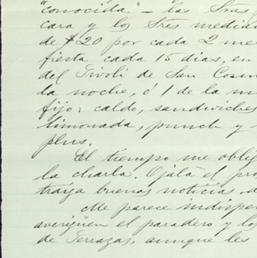 "conocida" - Las tres
cara y los tres median
de $20 por cada 2 me
fiesta cada 15 días, en
del Tivoli de San Cosm
la noche, ó 1 de la m
fijo: caldo, sandwiches
limonada, punch y
plus.
El tiempo me obli
la charla. Ojalá el pro
traiga buenas noticias d
Me parece indisp
averigüen el paradero y lo
de Terrazas, aunque les